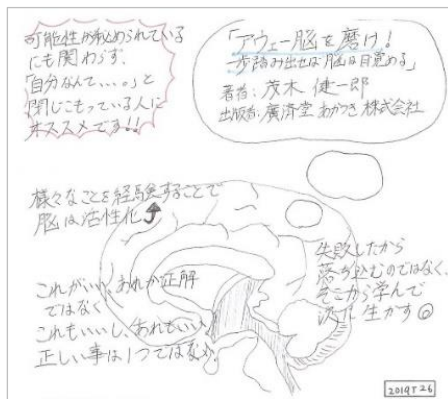 可能性が秘められている
にも関わらず、
「自分なんて、、、。」と
閉じこもっている人に
オススメです!!
「アウェー脳を磨け!
一歩踏み出せば脳は目覚める」
著者:茂木 健一郎
出版者:廣済堂 あかつき 株式会社
様々なことを経験することで
脳は活性化
これがいい、あれが正解
ではなく
これもいいし、あれもいい、
正しい事は1つではない。
失敗したから
落ち込むのではなく、
そこから学んで
次に生かす
2019T26